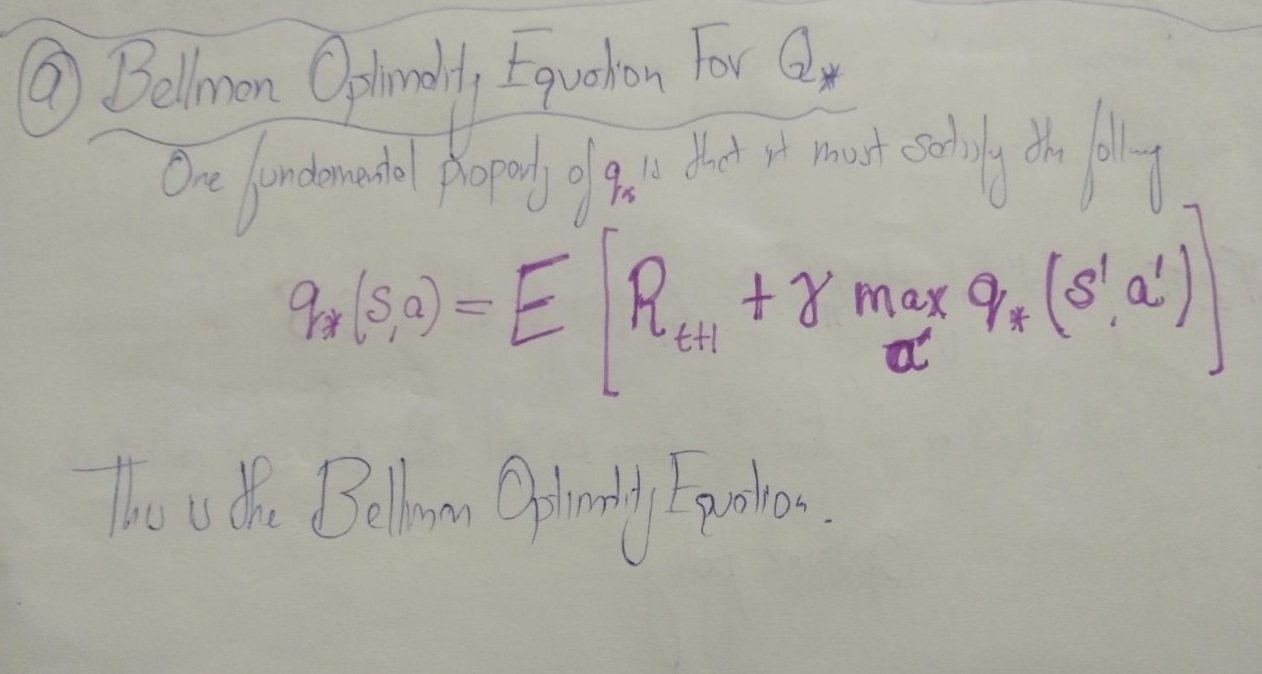 ⓐ Bellman Optimality Equation For Q*
One fundamental property of q* is that it must satisfy the following
q*(s,a) = E [R t+1 + γ max a' q*(s',a')]
This is the Bellman Optimality Equation.